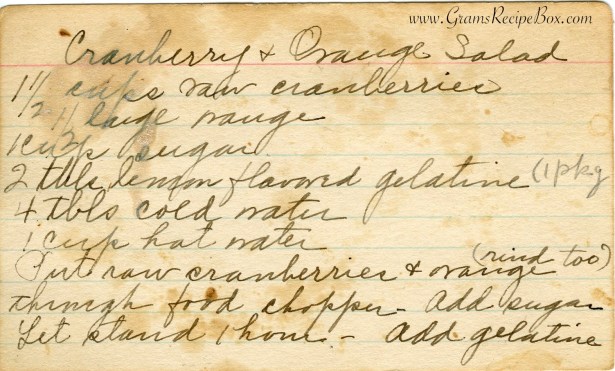 www.GramsRecipeBox.com
Cranberry & Orange Salad
cups raw cranberries
large orange
1 cup sugar
2 tbls lemon flavored gelatine (1 pkg
4 tbls cold water
1 cup hot water
Put raw cranberries & orange (rind too)
through food chopper - Add sugar
Let stand 1 hour - Add gelatine